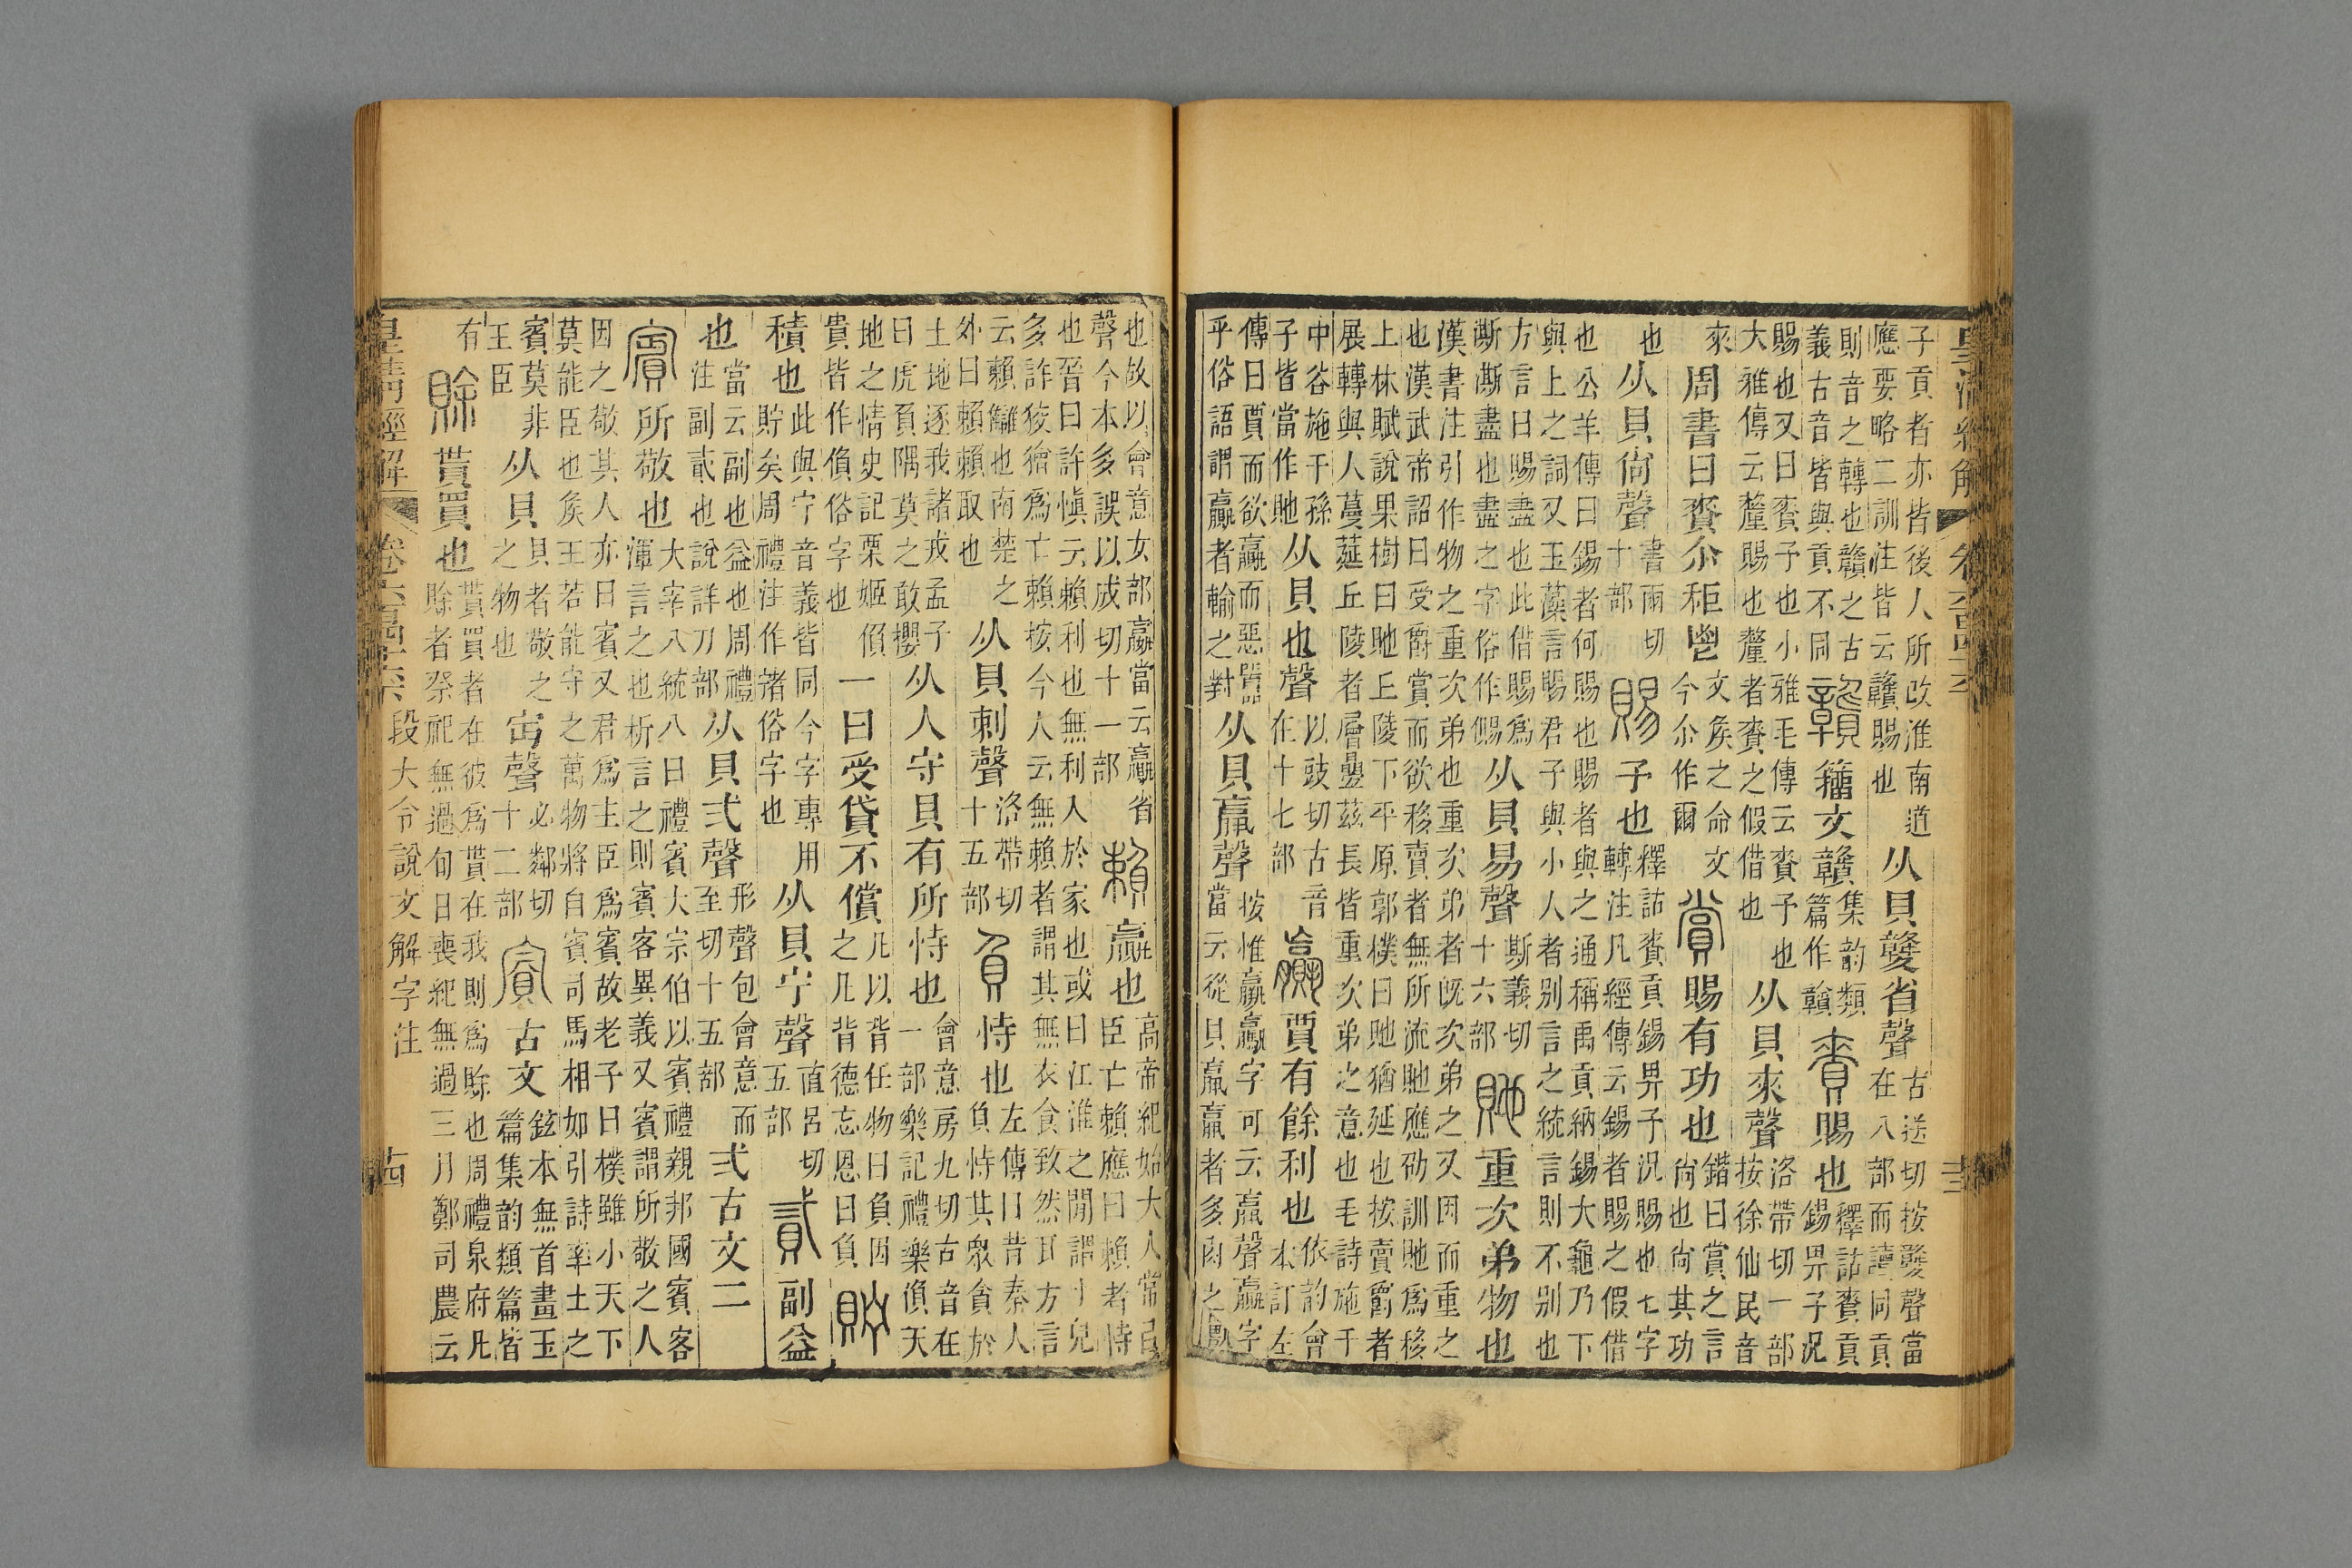 皇清經解 卷六百四十六 十三
子貢者亦皆後人所改淮南道應要略二訓注皆云贛賜也从貝竷省聲古送切按竷聲當在八部而讀同貢
則音之轉也贛之古義古音皆與貢不同贛籒文贛集韵類篇作贑賚賜也釋詁賚貢錫畀予況
賜也又曰賚予也小雅毛傳云賚予也大雅傳云釐賜也釐者賚之假借也从貝來聲洛帶切一部按徐仙民音
來周書曰賚尒秬鬯文矦之命文今尒作爾賞賜有功也鍇曰賞之言尙也尙其功
也从貝尙聲書兩切十部賜予也釋詁賚貢錫畀予況賜也七字轉注凡經傳云錫者賜之假借
也公羊傳曰錫者何賜也賜者與之通稱禹貢納錫大龜乃下與上之詞又玉藻言賜君子與小人者别言之統言則不别也
方言曰賜盡也此借賜爲澌澌盡也盡之字俗作儩从貝易聲斯義切十六部貤重次弟物也
漢書注引作物之重次弟也重次弟者旣次弟之又因而重之也漢武帝詔曰受爵賞而欲移賣者無所流貤應劭訓貤爲移
上林賦說果樹曰貤丘陵下平原郭樸曰貤猶延也按賣爵者展轉與人蔓莚丘陵者層曡茲長皆重次弟之意也毛詩施于
中谷施于孫子皆當作貤从貝也聲以豉切古音在十七部贏賈有餘利也依韵會本訂左
傳曰賈而欲贏而惡嚻乎俗語謂贏者輸之對从貝𣎆聲按惟嬴贏字可云𣎆聲贏字當云從貝𣎆𣎆者多肉之獸
也故以會意女部嬴當云贏省聲今本多誤以成切十一部賴贏也高帝紀始大人常㠯臣亡賴應曰賴者恃
也晉曰許愼云賴利也無利入於家也或曰江淮之閒謂小兒多詐狡獪爲亡賴按今人云無賴者謂其無衣食致然耳方言
云賴讎也南楚之外曰賴賴取也从貝剌聲洛帶切十五部負恃也左傳曰昔秦人負恃其衆貪於
土地逐我諸戎孟子曰虎負隅莫之敢攖从人守貝有所恃也會意房九切古音在一部樂記禮樂偩天
地之情史記栗姬偩貴皆作偩俗字也一曰受貸不償凡以背任物曰負因之凡背德忘恩曰負貯
積也此與宁音義皆同今字專用貯矣周禮注作䝬俗字也从貝宁聲直呂切五部貳副益
也當云副也益也周禮注副貳也說詳刀部从貝弍聲形聲包會意而至切十五部弍古文二
賓所敬也大宰八統八曰禮賓大宗伯以賓禮親邦國賓客渾言之也析言之則賓客異義又賓謂所敬之人
因之敬其人亦曰賓又君爲主臣爲賓故老子曰樸雖小天下莫能臣也矦王若能守之萬物將自賓司馬相如引詩率土之
賓莫非王臣从貝貝者敬之之物也𡧍聲必鄰切十二部賓古文鉉本無首畫玉篇集韵類篇皆
有賒貰買也貰買者在彼爲貰在我則爲賒也周禮泉府凡賒者祭祀無過旬日喪紀無過三月鄭司農云
皇淸經解 卷六百四十六 段大令說文解字注 十四